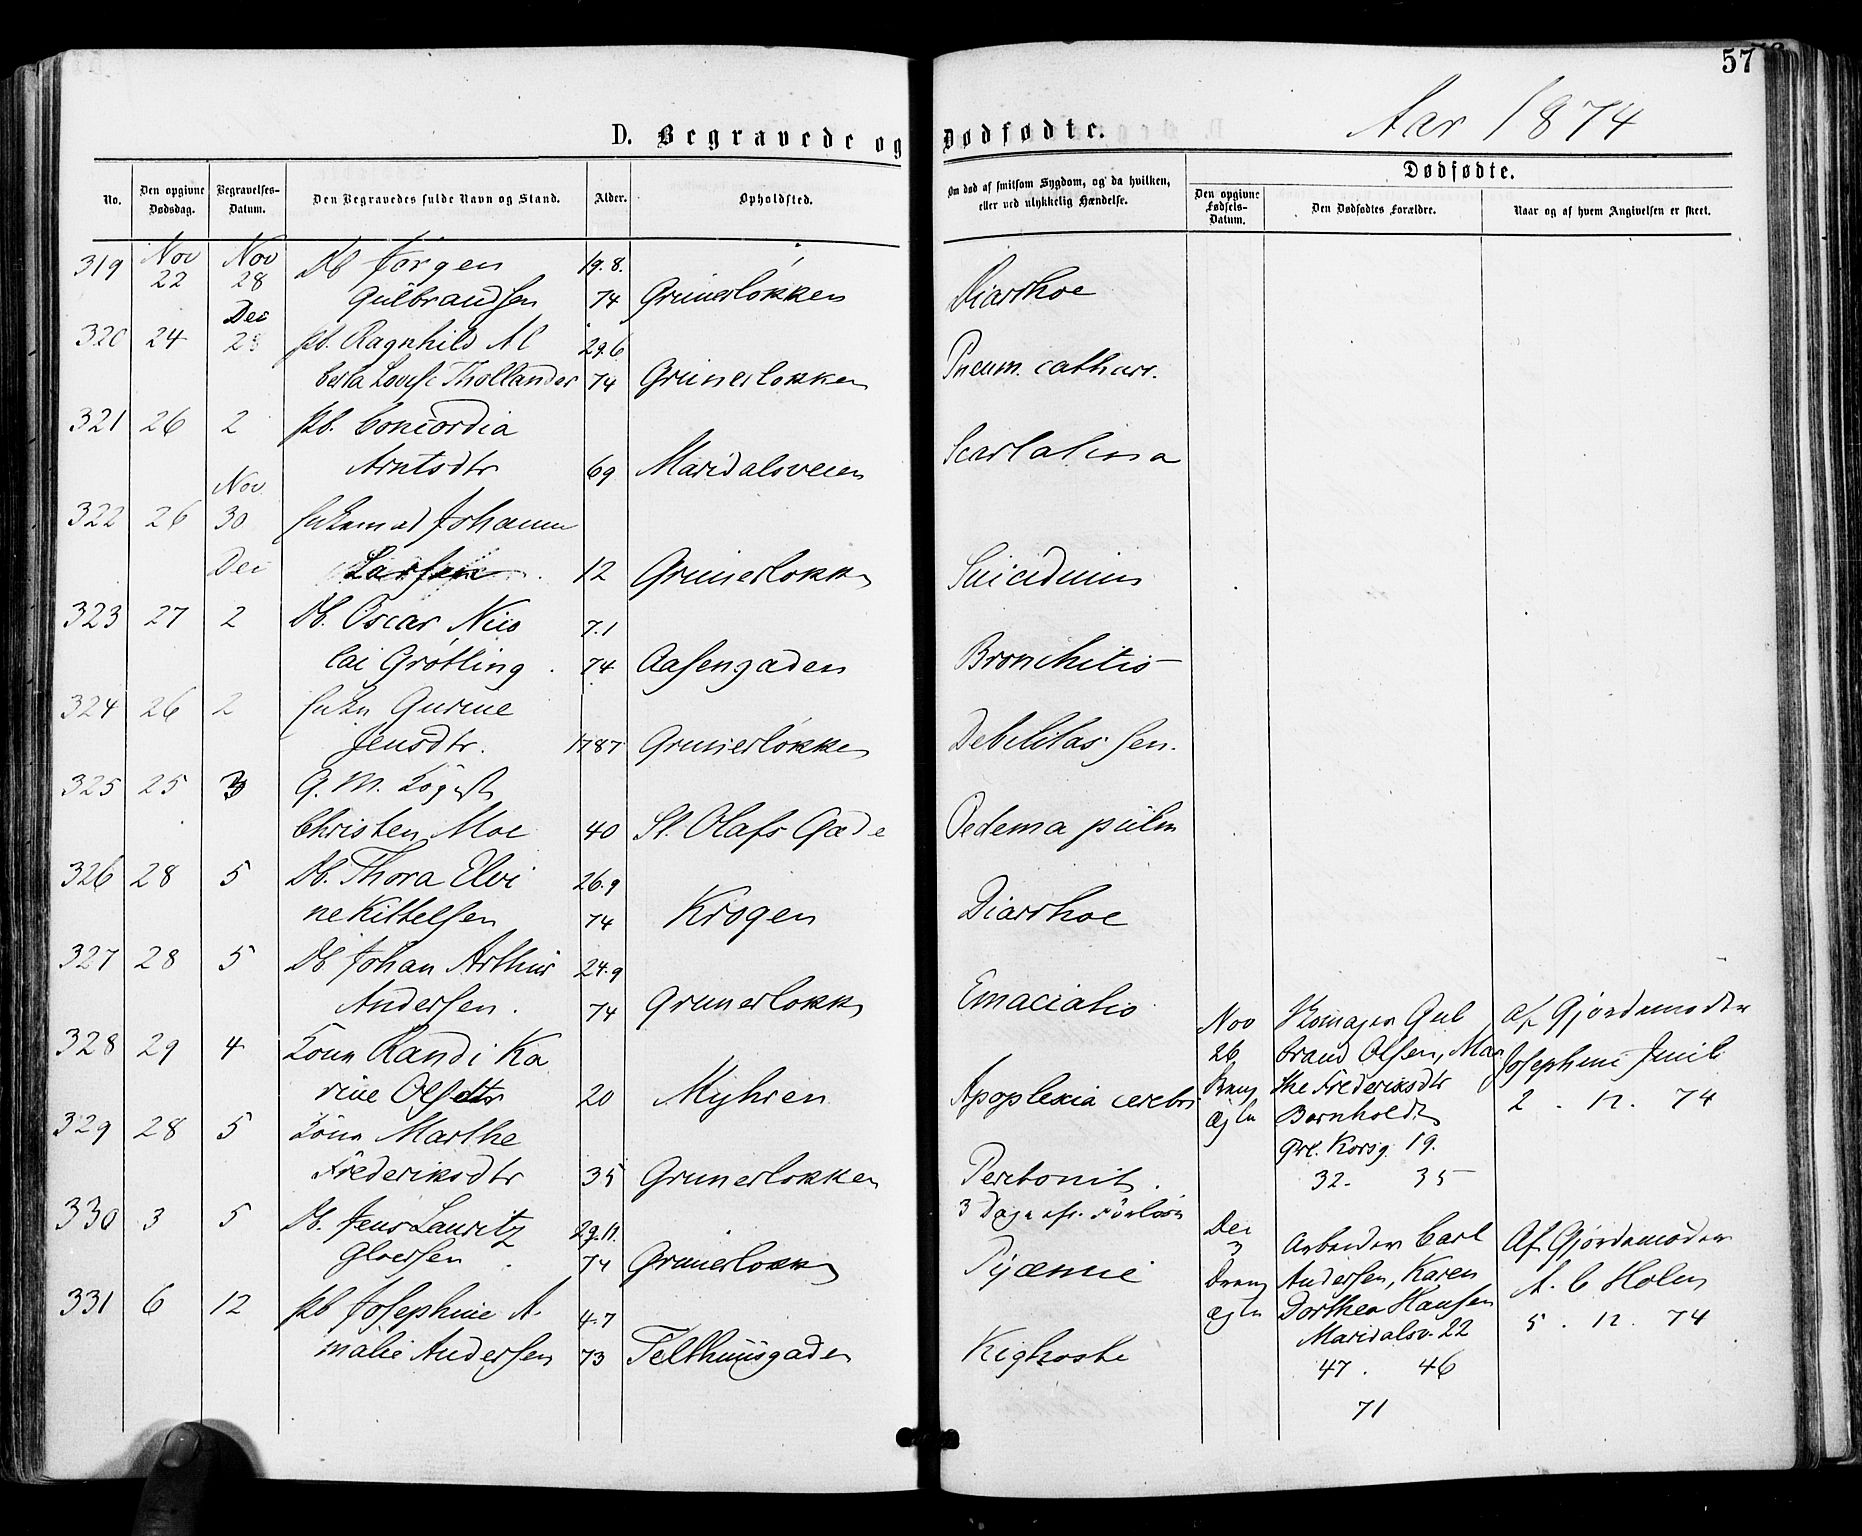 57
D. Begravede og Dødfødte.
Aar 1874
No.
Den opgivne Dødsdag.
Begravelses-Datum.
Den Begravedes fulde Navn og Stand.
Alder.
Opholdsted.
Om død af smitsom Sygdom, og da hvilken, eller ved ulykkelig Hændelse.
Dødfødte.
Den opgivne Fødsels-Datum.
Den Dødfødtes Forældre.
Naar og af hvem Angivelsen er skeet.
319 Nov 22 Nov 28 Db Jörgen 19.8.
Gülbrandsen 74 Grünerløkken Diarrhoe
Dec
320 24 2 pb. Ragnhild Al 29.6
berta Lovise Thollander 74 Grünerløkken Pneum. catharr.
321 26 2 pb. Concordia
Arntsdtr 69 Maridalsveien Scarlatina
Nov
322 26 30 Johanne
Dec Larsen 12 Grünerløkk Suicidium
323 27 2 Db. Oscar Nico 7.1
lai Grøtling 74 Aasengaden Bronchitis
324 26 2 Gurine
Jensdtr. 1787 Grünerløkken Debilitas sen.
325 25 3 G. M.
Christen Moe 40 St. Olafs Gade Oedema pulm
326 28 5 Db. Thora Elvi 26.9
ne Kittelsen 74 Krogen Diarrhoe
327 28 5 Db Johan Arthur 24.9
Andersen. 74 Grünerløkk Emaciatio
328 29 4 Kone Randi Ka
rine Olsdtr 20 Myhren Apoplexia cerebri
329 28 5 Kone Marthe
Frederiksdtr 35 Grünerløkken Peritonit.
3 Dage eft. Forløsn
330 3 5 Db. Jens Lauritz 29.11.
Gloersen 74 Grünerløkk Pyæmie
331 6 12 pb Josephine A. 4.7
malie Andersen 73 Telthuusgaden Kighoste
Nov
26
Dreng
ægte
Skomager Gul
brand Olsen, Mar
the Frederiksdtr
Bornholdt
Grl. Korsg. 19.
32. 35
af Gjordemoder
Josephine
2. 12. 74
Dec
3
Dreng
ægte
Arbeider Carl
Andersen, Karen
Dorthea Hansen
Maridalsv. 22
47. 46
71
Af Gjordemoder
A. C Holm
5. 12. 74